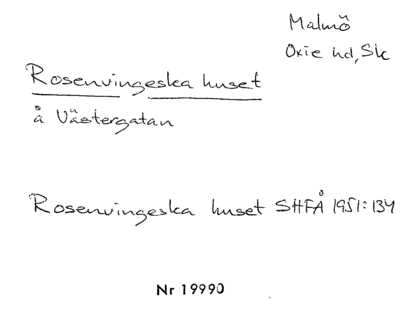 Malmö
Oxie hd, Sk
Rosenvingeska huset
å Västergatan
Rosenvingeska huset SHFÅ 1951:134
Nr 19990